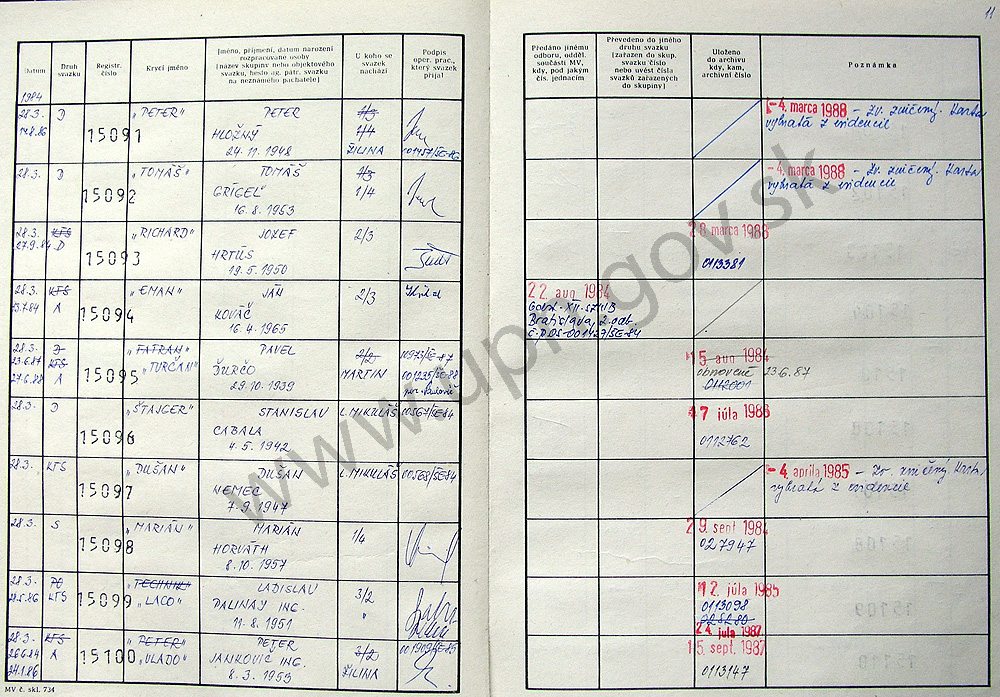 11
Datum
Druh svazku
Registr. číslo
Krycí jméno
Jméno, příjmení, datum narození
rozpracované osoby
(název skupiny nebo objektového
svazku, heslo sg. pátr. svazku
na neznámého pachatele)
U koho se
svazek
nachází
Podpis
oper. prac.,
který svazek
přijal
Předáno jinému
odboru, odděl.
součásti MV,
kdy, pod jakým
čís. jednacím
Převedeno do jiného
druhu svazku
(zařazen do skup.
svazku číslo
nebo uvést čísla
svazků zařazených
do skupiny)
Uloženo
do archivu
kdy, kam,
archivní číslo
Poznámka
1984
28.3. D 15091 "PETER" PETER 1/3
14.8.86 HLOŽNÝ 1/4
24.11.1948 ŽILINA 001457/ŠE-86
-4. marca 1988 - Zv. zničený. Karta
vybratá z evidencie
28.3. D 15092 "TOMÁŠ" TOMÁŠ 1/3
GRÍGEĽ 1/4
16.8.1953
-4. marca 1988 - Zv. zničený. Karta
vybratá z evidencie
28.3. KTS 15093 "RICHARD" JOZEF 2/3
27.9.84 D HRTÚS
19.5.1950
28. marca 1988
0113381
28.3. KTS 15094 "EMAN" JÁN 2/3
23.7.84 A KOVÁČ
16.4.1965
22. aug 1984
Bratislava, 2. odb.
28.3. D 15095 "FATRAN" PAVEL 2/2
23.6.87 KTS "TURČAN" ĎURČO MARTIN
27.6.88 A 29.10.1939 001235/ŠE-88
15. aug 1984
obnovené 23.6.87
0112001
28.3. D 15096 "ŠTAJGER" STANISLAV L. MIKULÁŠ 00567/ŠE-84
CABALA
4.5.1942
17. júla 1986
0112762
28.3. KTS 15097 "DUŠAN" DUŠAN L. MIKULÁŠ 00568/ŠE-84
NEMEC
7.9.1947
-4. apríla 1985 - Zv. zničený Karta
vybratá z evidencie
28.3. S 15098 "MARIÁN" MARIÁN 1/4
HORVÁTH
8.10.1957
29. sept. 1984
027947
28.3. PO 15099 "TECHNIK" LADISLAV 3/2
KTS "LACO" PALINAY ING. "
11.8.1951
12. júla 1985
0113098
24. júla 1987
28.3. KTS 15100 "PETER" PETER 3/2 001909/ŠE-85
26.6.84 A "VLADO" JANKOVIČ ING. ŽILINA
24.1.86 8.3.1953
15. sept. 1987
0113147
MV č. skl. 734
www.upn.gov.sk